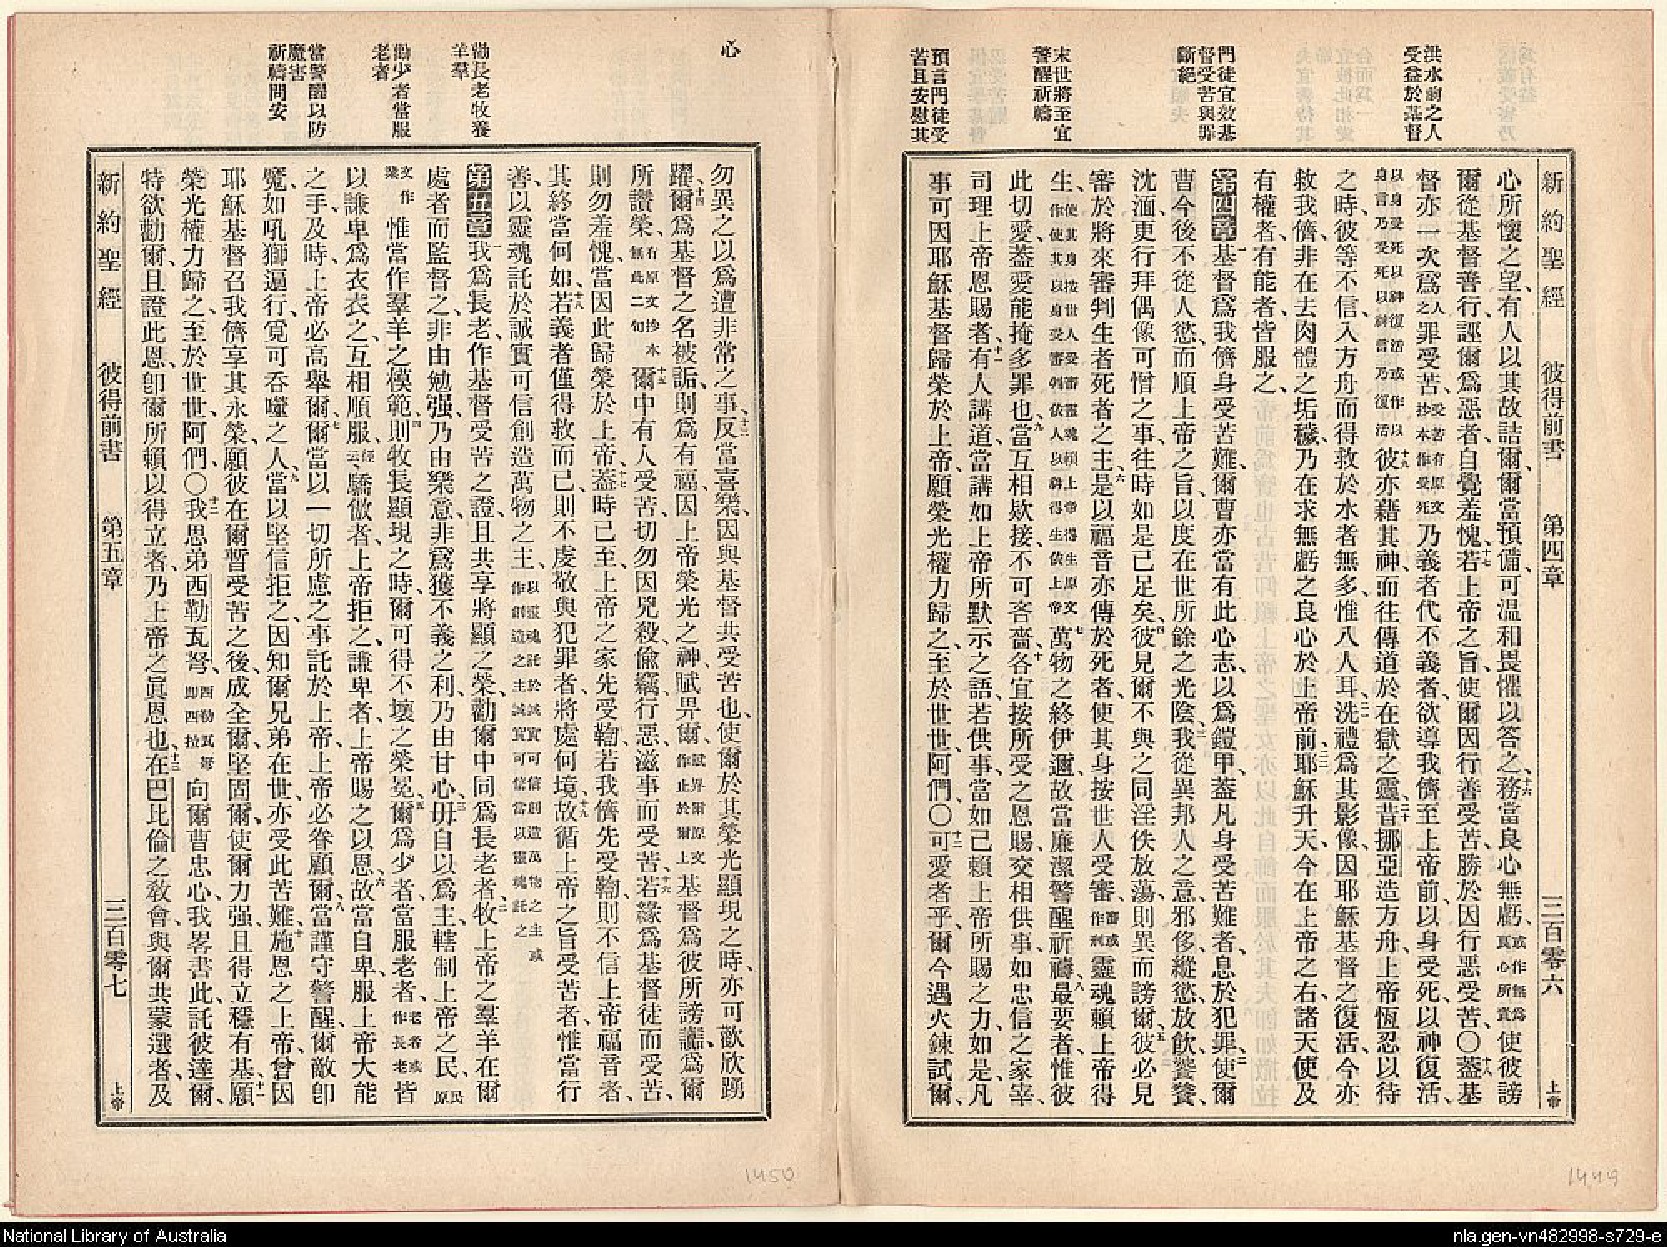 洪水前之人
受益於基督
門徒宜效基
督受苦與罪
斷絕
末世將至宜
警醒祈禱
預言門徒受
苦且安慰其
新約聖經 彼得前書 第四章 三百零六 上帝
心所懷之望、有人以其故詰爾、爾當預備、可温和畏懼以答之、十六務當良心無虧、或作無為良心所責使彼謗
爾從基督善行、誣爾爲惡者、自覺羞愧、十七若上帝之旨、使爾因行善受苦、勝於因行惡受苦、〇十八蓋基
督亦一次爲人之罪受苦、受苦有原文抄本作受死乃義者代不義者、欲導我儕至上帝前、以身受死、以神復活、
以身受死以神復活或作以身言乃受死以神言乃復活十九彼亦藉其神、而往傳道於在獄之靈、二十昔挪亞造方舟、上帝恆忍以待
之時、彼等不信、入方舟而得救於水者無多、惟八人耳、二一洗禮爲其影像、因耶穌基督之復活、今亦
救我儕、非在去肉體之垢穢、乃在求無虧之良心於上帝前、二二耶穌升天、今在上帝之右、諸天使及
有權者、有能者、皆服之、
第四章 一基督爲我儕身受苦難、爾曹亦當有此心志、以爲鎧甲、蓋凡身受苦難者、息於犯罪、二使爾
曹今後不從人慾、而順上帝之旨、以度在世所餘之光陰、三我從異邦人之意、邪侈、縱慾、放飲、饕餮、
沈湎、更行拜偶像可憎之事、往時如是已足矣、四彼見爾不與之同淫佚放蕩、則異而謗爾、五彼必見
審於將來審判生者死者之主、六是以福音亦傳於死者、使其身按世人受審、審或作判靈魂賴上帝得
生、使其身按世人受審靈魂賴上帝得生原文作使其以身受審判依人以神得生依上帝七萬物之終伊邇、故當廉潔警醒祈禱、八最要者、惟彼
此切愛、蓋愛能掩多罪也、九當互相欵接、不可吝嗇、十各宜按所受之恩賜、交相供事、如忠信之家宰、
司理上帝恩賜者、十一有人講道、當講如上帝所默示之語、若供事、當如己賴上帝所賜之力、如是、凡
事可因耶穌基督歸榮於上帝、願榮光權力歸之、至於世世、阿們、〇十二可愛者乎、爾今遇火鍊試爾、
心
勸長老牧養
羊羣
勸少者當服
老者
當警醒以防
魔害
祈禱問安
勿異之以爲遭非常之事、十三反當喜樂、因與基督共受苦也、使爾於其榮光顯現之時、亦可歡欣踴
躍、十四爾爲基督之名被詬、則爲有福、因上帝榮光之神、賦畀爾、賦畀爾原文作止於爾上基督爲彼所謗讟、爲爾
所讚榮、有原文抄本無此二句十五爾中有人受苦、切勿因兇殺、偷竊、行惡、滋事而受苦、十六若緣爲基督徒而受苦、
則勿羞愧、當因此歸榮於上帝、十七蓋時已至、上帝之家先受鞫、若我儕先受鞫、則不信上帝福音者、
其終當何如、十八若義者僅得救而已、則不虔敬與犯罪者、將處何境、十九故循上帝之旨受苦者、惟當行
善、以靈魂託於誠實可信創造萬物之主、以靈魂託於誠實可信創造萬物之主或作創造之主誠實可信當以靈魂託之
第五章 一我爲長老、作基督受苦之證、且共享將顯之榮、勸爾中同爲長老者、二牧上帝之羣羊在爾
處者而監督之、非由勉强、乃由樂意、非爲獲不義之利、乃由甘心、三毋自以爲主、轄制上帝之民、民原
文作業惟當作羣羊之模範、四則牧長顯現之時、爾可得不壞之榮冕、五爾爲少者、當服老者、老者或作長老皆
以謙卑爲衣衣之、互相順服、經云、驕傲者、上帝拒之、謙卑者、上帝賜之以恩、六故當自卑、服上帝大能
之手、及時、上帝必高舉爾、七爾當以一切所慮之事託於上帝、上帝必眷顧爾、八當謹守警醒、爾敵卽
魔、如吼獅遍行、覓可吞噬之人、九當以堅信拒之、因知爾兄弟在世、亦受此苦難、十施恩之上帝、曾因
耶穌基督召我儕享其永榮、願彼在爾暫受苦之後、成全爾、堅固爾、使爾力强、且得立穩有基、十一願
榮光權力歸之、至於世世、阿們、〇十二我思弟西勒瓦弩、西勒瓦弩卽西拉向爾曹忠心、我畧書此、託彼達爾、
特欲勸爾、且證此恩、卽爾所賴以得立者、乃上帝之眞恩也、十三在巴比倫之敎會、與爾共蒙選者、及
新約聖經 彼得前書 第五章 三百零七 上帝
1450
1449
National Library of Australia
nla.gen-vn482998-s729-e